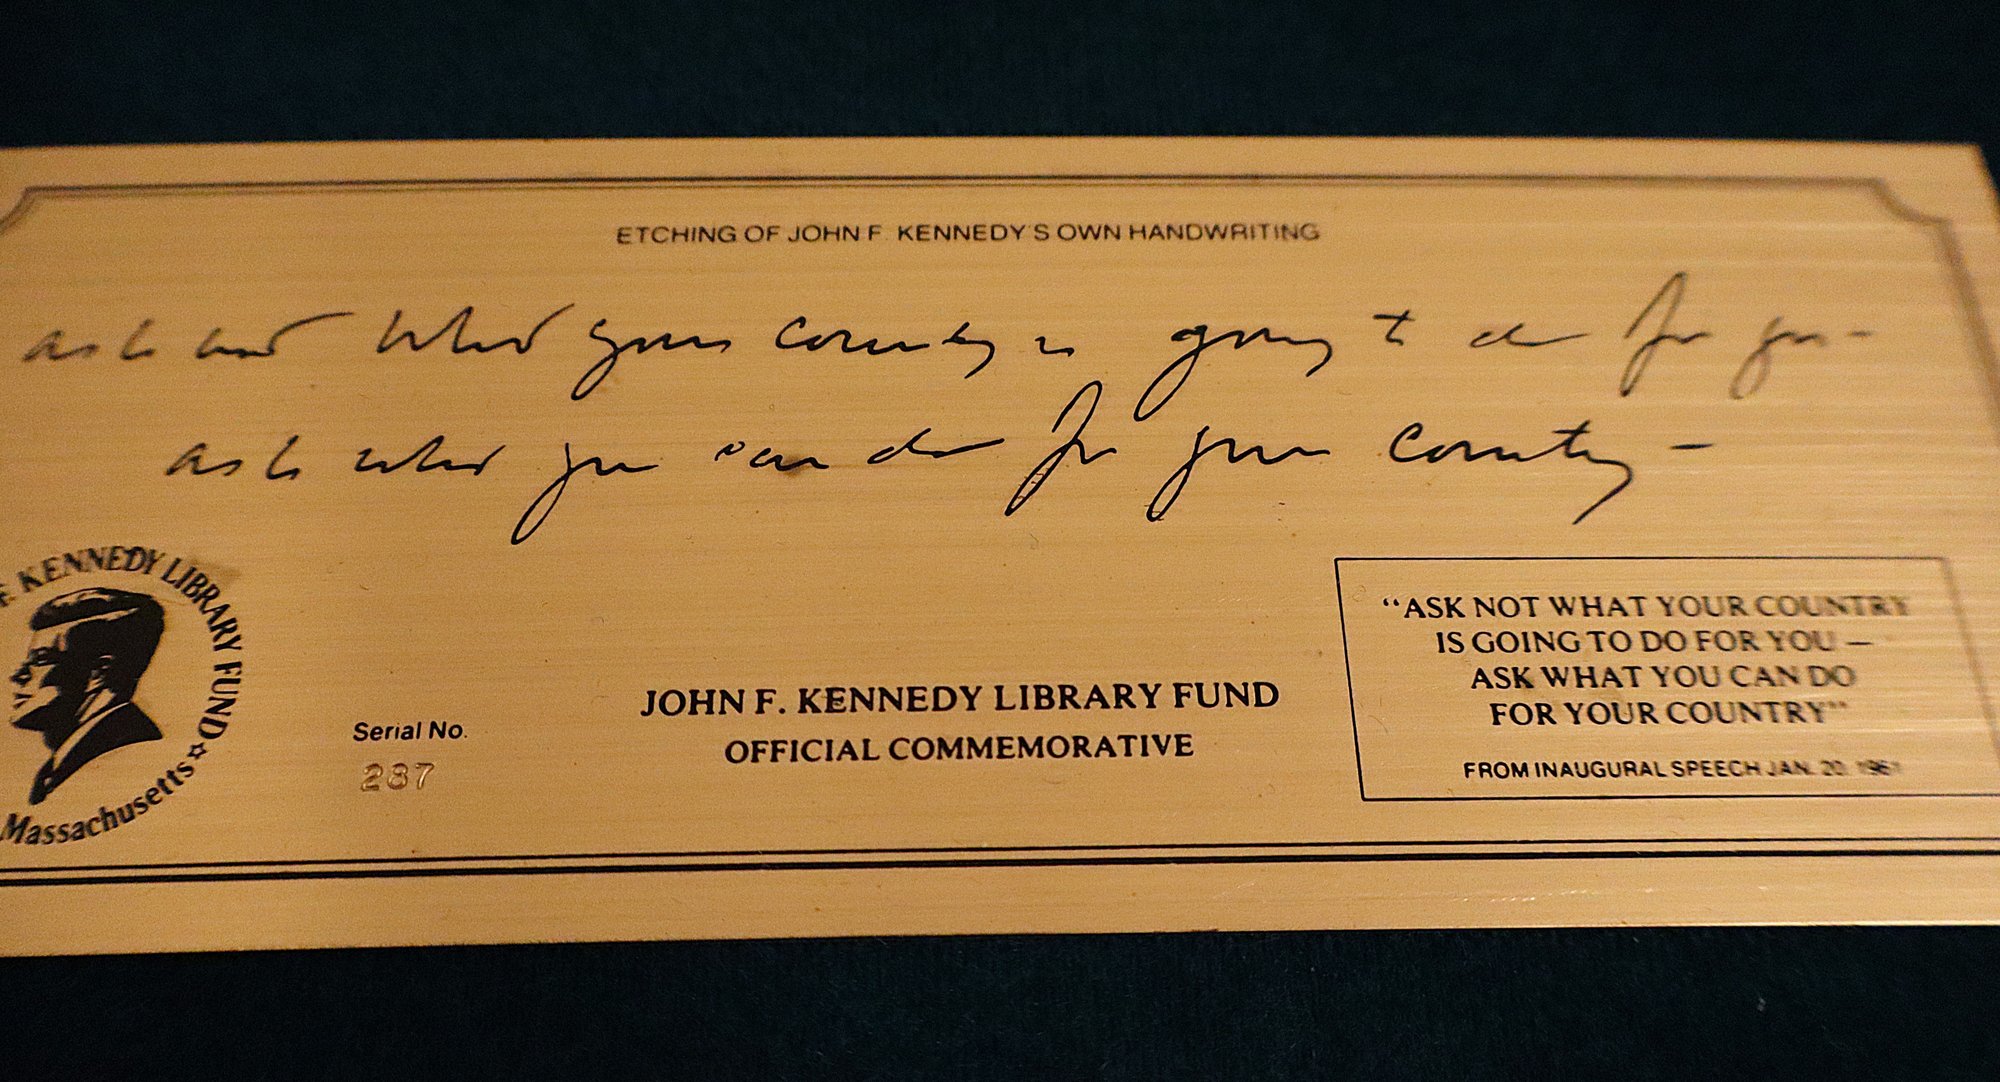 ETCHING OF JOHN F. KENNEDY'S OWN HANDWRITING
ask not what your country is going to do for you –
ask what you can do for your country –
F. KENNEDY LIBRARY FUND ☆
Massachusetts
Serial No.
287
JOHN F. KENNEDY LIBRARY FUND
OFFICIAL COMMEMORATIVE
“ASK NOT WHAT YOUR COUNTRY
IS GOING TO DO FOR YOU —
ASK WHAT YOU CAN DO
FOR YOUR COUNTRY”
FROM INAUGURAL SPEECH JAN. 20, 1961